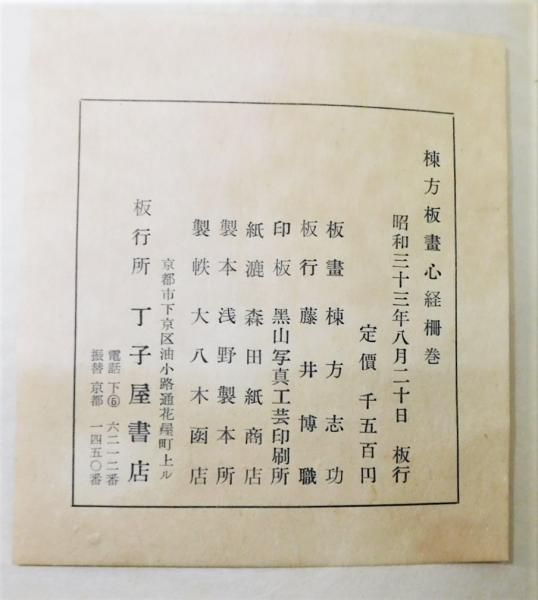 棟方板畫心経柵巻
昭和三十三年八月二十日 板行
定價 千五百円
板畫 棟方志功
板行 藤井博職
印板 黑山写真工芸印刷所
紙漉 森田紙商店
製本 浅野製本所
製帙 大八木函店
京都市下京区油小路通花屋町上ル
板行所 丁子屋書店
電話 下⑥ 六二一二番
振替 京都 一四五〇番